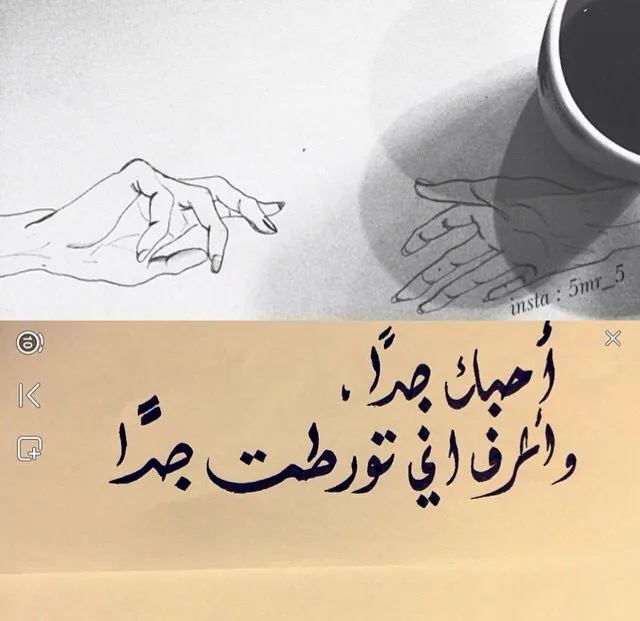 insta : 5mr_5
10
أحبك جدًا .
وأعرف اني تورطت جدًا